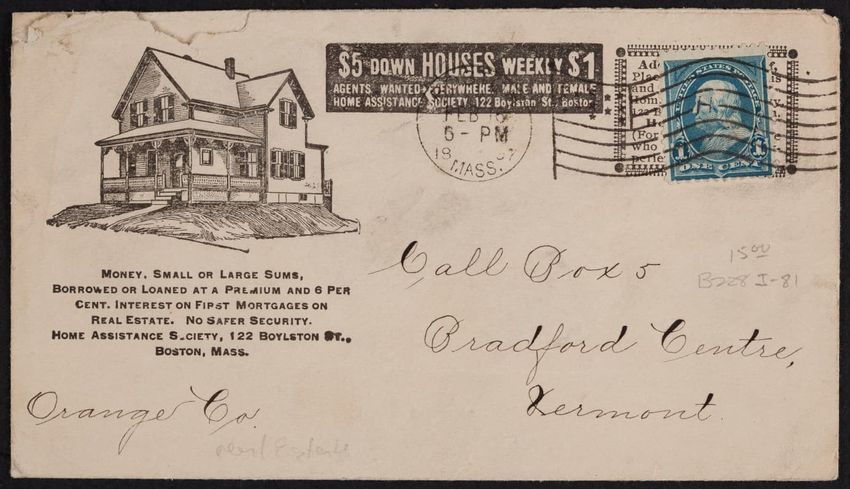 $5 DOWN HOUSES WEEKLY $1
AGENTS WANTED EVERYWHERE. MALE AND FEMALE
HOME ASSISTANCE SOCIETY 122 Boylston St. Boston
FEB
6 - PM
18 97
MASS.
Ad
Place
and
tom
122 B
H
(For
who
perfe
UNITED STATES
1 ONE CENT 1
MONEY, SMALL OR LARGE SUMS,
BORROWED OR LOANED AT A PREMIUM AND 6 PER
CENT. INTEREST ON FIRST MORTGAGES ON
REAL ESTATE. NO SAFER SECURITY.
HOME ASSISTANCE SOCIETY, 122 BOYLSTON ST.,
BOSTON, MASS.
Call Box 5
Bradford Centre,
Vermont.
Orange Co.
15 00
B228 I-81
real Estate